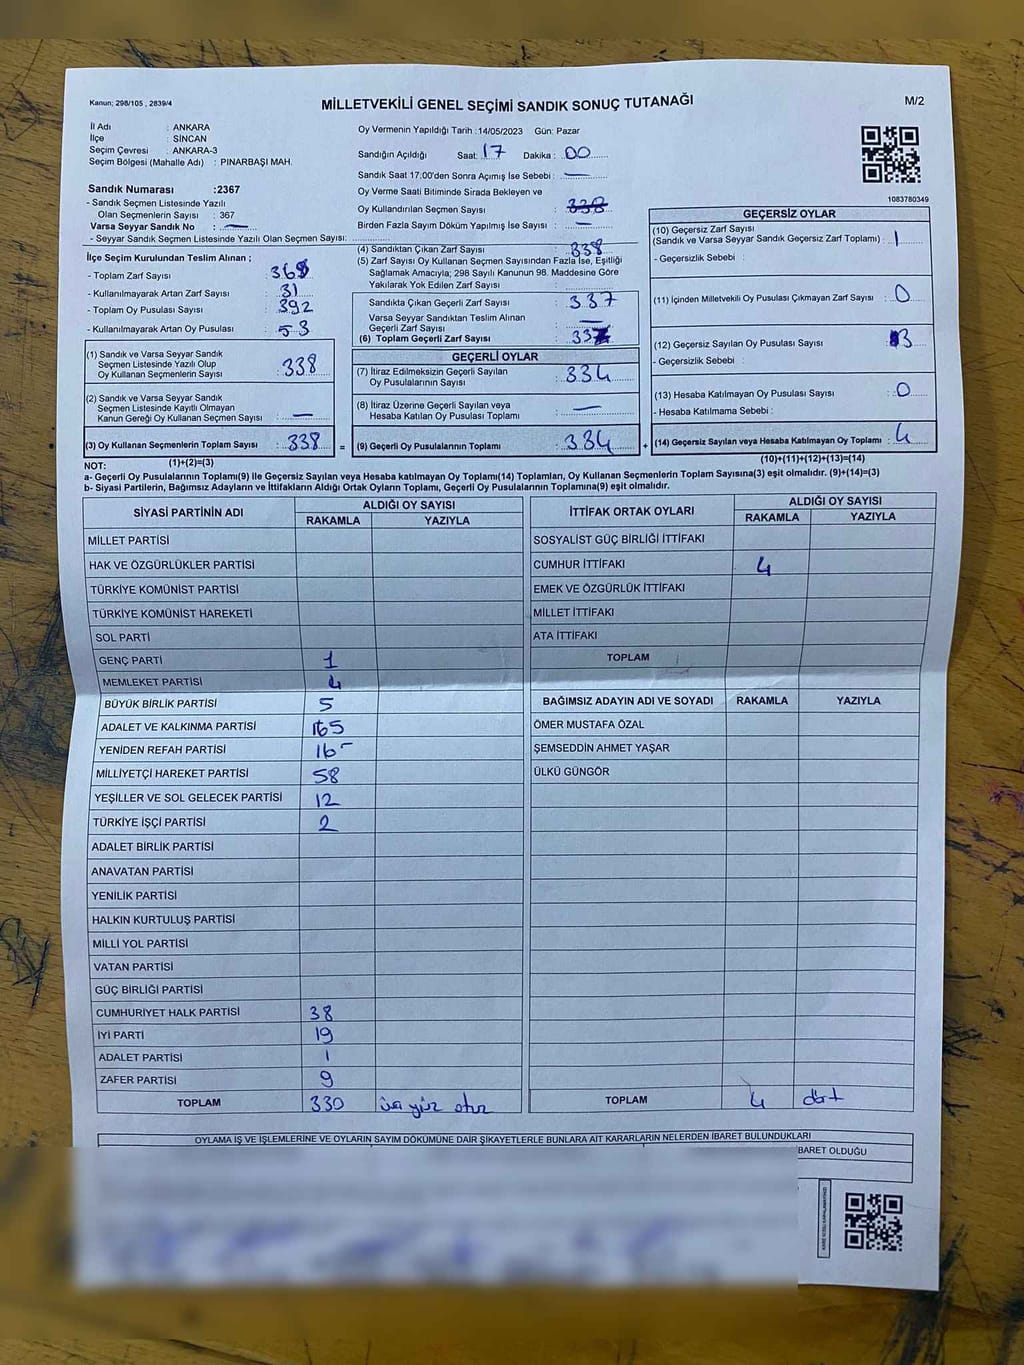 Kanun; 298/105 , 2839/4
MİLLETVEKİLİ GENEL SEÇİMİ SANDIK SONUÇ TUTANAĞI
M/2
İl Adı : ANKARA
İlçe : SİNCAN
Seçim Çevresi : ANKARA-3
Seçim Bölgesi (Mahalle Adı) : PINARBAŞI MAH.
Sandık Numarası :2367
- Sandık Seçmen Listesinde Yazılı
Olan Seçmenlerin Sayısı : 367
Varsa Seyyar Sandık No : —
- Seyyar Sandık Seçmen Listesinde Yazılı Olan Seçmen Sayısı:
Oy Vermenin Yapıldığı Tarih :14/05/2023 Gün: Pazar
Sandığın Açıldığı Saat: 17 Dakika : 00
Sandık Saat 17:00'den Sonra Açımış İse Sebebi : —
Oy Verme Saati Bitiminde Sırada Bekleyen ve
Oy Kullandırılan Seçmen Sayısı : 338
Birden Fazla Sayım Döküm Yapılmış İse Sayısı : —
1083780349
İlçe Seçim Kurulundan Teslim Alınan ;
- Toplam Zarf Sayısı : 368
- Kullanılmayarak Artan Zarf Sayısı : 31
- Toplam Oy Pusulası Sayısı : 392
- Kullanılmayarak Artan Oy Pusulası : 53
(1) Sandık ve Varsa Seyyar Sandık
Seçmen Listesinde Yazılı Olup
Oy Kullanan Seçmenlerin Sayısı : 338
(2) Sandık ve Varsa Seyyar Sandık
Seçmen Listesinde Kayıtlı Olmayan
Kanun Gereği Oy Kullanan Seçmen Sayısı : —
(3) Oy Kullanan Seçmenlerin Toplam Sayısı : 338
(4) Sandıktan Çıkan Zarf Sayısı : 338
(5) Zarf Sayısı Oy Kullanan Seçmen Sayısından Fazla İse, Eşitliği
Sağlamak Amacıyla; 298 Sayılı Kanunun 98. Maddesine Göre
Yakılarak Yok Edilen Zarf Sayısı :
Sandıkta Çıkan Geçerli Zarf Sayısı : 337
Varsa Seyyar Sandıktan Teslim Alınan
Geçerli Zarf Sayısı : —
(6) Toplam Geçerli Zarf Sayısı : 337
GEÇERLİ OYLAR
(7) İtiraz Edilmeksizin Geçerli Sayılan
Oy Pusulalarının Sayısı : 334
(8) İtiraz Üzerine Geçerli Sayılan veya
Hesaba Katılan Oy Pusulası Toplamı : —
= (9) Geçerli Oy Pusulalarının Toplamı : 334 +
GEÇERSİZ OYLAR
(10) Geçersiz Zarf Sayısı
(Sandık ve Varsa Seyyar Sandık Geçersiz Zarf Toplamı) : 1
- Geçersizlik Sebebi :
(11) İçinden Milletvekili Oy Pusulası Çıkmayan Zarf Sayısı : 0
(12) Geçersiz Sayılan Oy Pusulası Sayısı : 3
- Geçersizlik Sebebi :
(13) Hesaba Katılmayan Oy Pusulası Sayısı : 0
- Hesaba Katılmama Sebebi :
(14) Geçersiz Sayılan veya Hesaba Katılmayan Oy Toplamı : 4
NOT: (1)+(2)=(3)
(10)+(11)+(12)+(13)=(14)
a- Geçerli Oy Pusulalarının Toplamı(9) ile Geçersiz Sayılan veya Hesaba katılmayan Oy Toplamı(14) Toplamları, Oy Kullanan Seçmenlerin Toplam Sayısına(3) eşit olmalıdır. (9)+(14)=(3)
b- Siyasi Partilerin, Bağımsız Adayların ve İttifakların Aldığı Ortak Oyların Toplamı, Geçerli Oy Pusulalarının Toplamına(9) eşit olmalıdır.
SİYASİ PARTİNİN ADI ALDIĞI OY SAYISI
RAKAMLA YAZIYLA
MİLLET PARTİSİ
HAK VE ÖZGÜRLÜKLER PARTİSİ
TÜRKİYE KOMÜNİST PARTİSİ
TÜRKİYE KOMÜNİST HAREKETİ
SOL PARTİ
GENÇ PARTİ 1
MEMLEKET PARTİSİ 4
BÜYÜK BİRLİK PARTİSİ 5
ADALET VE KALKINMA PARTİSİ 165
YENİDEN REFAH PARTİSİ 16
MİLLİYETÇİ HAREKET PARTİSİ 58
YEŞİLLER VE SOL GELECEK PARTİSİ 12
TÜRKİYE İŞÇİ PARTİSİ 2
ADALET BİRLİK PARTİSİ
ANAVATAN PARTİSİ
YENİLİK PARTİSİ
HALKIN KURTULUŞ PARTİSİ
MİLLİ YOL PARTİSİ
VATAN PARTİSİ
GÜÇ BİRLİĞİ PARTİSİ
CUMHURİYET HALK PARTİSİ 38
İYİ PARTİ 19
ADALET PARTİSİ 1
ZAFER PARTİSİ 9
TOPLAM 330 üç yüz otuz
İTTİFAK ORTAK OYLARI ALDIĞI OY SAYISI
RAKAMLA YAZIYLA
SOSYALİST GÜÇ BİRLİĞİ İTTİFAKI
CUMHUR İTTİFAKI 4
EMEK VE ÖZGÜRLÜK İTTİFAKI
MİLLET İTTİFAKI
ATA İTTİFAKI
TOPLAM
BAĞIMSIZ ADAYIN ADI VE SOYADI RAKAMLA YAZIYLA
ÖMER MUSTAFA ÖZAL
ŞEMSEDDİN AHMET YAŞAR
ÜLKÜ GÜNGÖR
TOPLAM 4 dört
OYLAMA İŞ VE İŞLEMLERİNE VE OYLARIN SAYIM DÖKÜMÜNE DAİR ŞİKAYETLERLE BUNLARA AİT KARARLARIN NELERDEN İBARET BULUNDUKLARI
BARET OLDUĞU